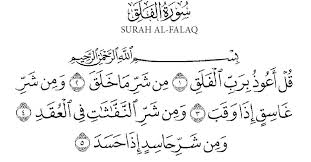 سُورَةُ الْفَلَقِ
SURAH AL-FALAQ
بِسْمِ اللَّهِ الرَّحْمَٰنِ الرَّحِيمِ
قُلْ أَعُوذُ بِرَبِّ الْفَلَقِ ١ مِن شَرِّ مَا خَلَقَ ٢ وَمِن شَرِّ
غَاسِقٍ إِذَا وَقَبَ ٣ وَمِن شَرِّ النَّفَّاثَاتِ فِي الْعُقَدِ ٤
وَمِن شَرِّ حَاسِدٍ إِذَا حَسَدَ ٥